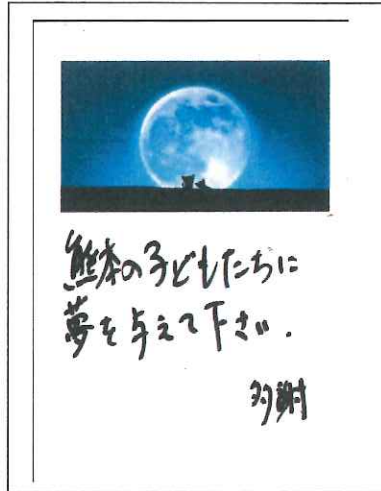 熊本の子どもたちに
夢を与えて下さい.
多謝